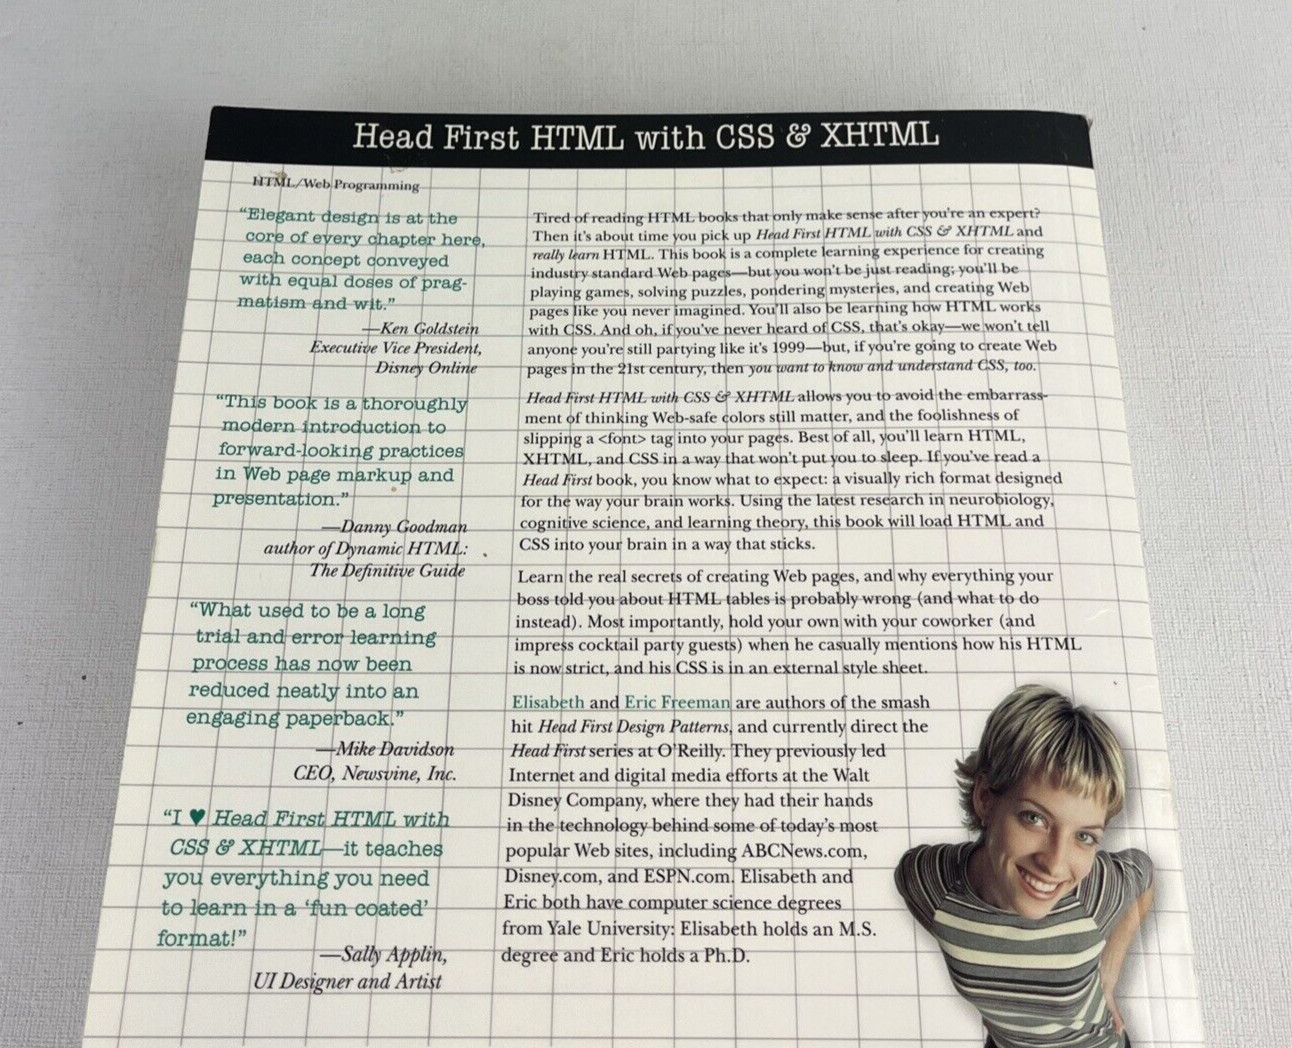 Head First HTML with CSS & XHTML
HTML/Web Programming
“Elegant design is at the
core of every chapter here,
each concept conveyed
with equal doses of prag-
matism and wit.”
—Ken Goldstein
Executive Vice President,
Disney Online
“This book is a thoroughly
modern introduction to
forward-looking practices
in Web page markup and
presentation.”
—Danny Goodman
author of Dynamic HTML:
The Definitive Guide
“What used to be a long
trial and error learning
process has now been
reduced neatly into an
engaging paperback.”
—Mike Davidson
CEO, Newsvine, Inc.
“I ♥ Head First HTML with
CSS & XHTML—it teaches
you everything you need
to learn in a ‘fun coated’
format!”
—Sally Applin,
UI Designer and Artist
Tired of reading HTML books that only make sense after you’re an expert?
Then it’s about time you pick up Head First HTML with CSS & XHTML and
really learn HTML. This book is a complete learning experience for creating
industry standard Web pages—but you won’t be just reading; you’ll be
playing games, solving puzzles, pondering mysteries, and creating Web
pages like you never imagined. You’ll also be learning how HTML works
with CSS. And oh, if you’ve never heard of CSS, that’s okay—we won’t tell
anyone you’re still partying like it’s 1999—but, if you’re going to create Web
pages in the 21st century, then you want to know and understand CSS, too.
Head First HTML with CSS & XHTML allows you to avoid the embarrass-
ment of thinking Web-safe colors still matter, and the foolishness of
slipping a <font> tag into your pages. Best of all, you’ll learn HTML,
XHTML, and CSS in a way that won’t put you to sleep. If you’ve read a
Head First book, you know what to expect: a visually rich format designed
for the way your brain works. Using the latest research in neurobiology,
cognitive science, and learning theory, this book will load HTML and
CSS into your brain in a way that sticks.
Learn the real secrets of creating Web pages, and why everything your
boss told you about HTML tables is probably wrong (and what to do
instead). Most importantly, hold your own with your coworker (and
impress cocktail party guests) when he casually mentions how his HTML
is now strict, and his CSS is in an external style sheet.
Elisabeth and Eric Freeman are authors of the smash
hit Head First Design Patterns, and currently direct the
Head First series at O’Reilly. They previously led
Internet and digital media efforts at the Walt
Disney Company, where they had their hands
in the technology behind some of today’s most
popular Web sites, including ABCNews.com,
Disney.com, and ESPN.com. Elisabeth and
Eric both have computer science degrees
from Yale University: Elisabeth holds an M.S.
degree and Eric holds a Ph.D.